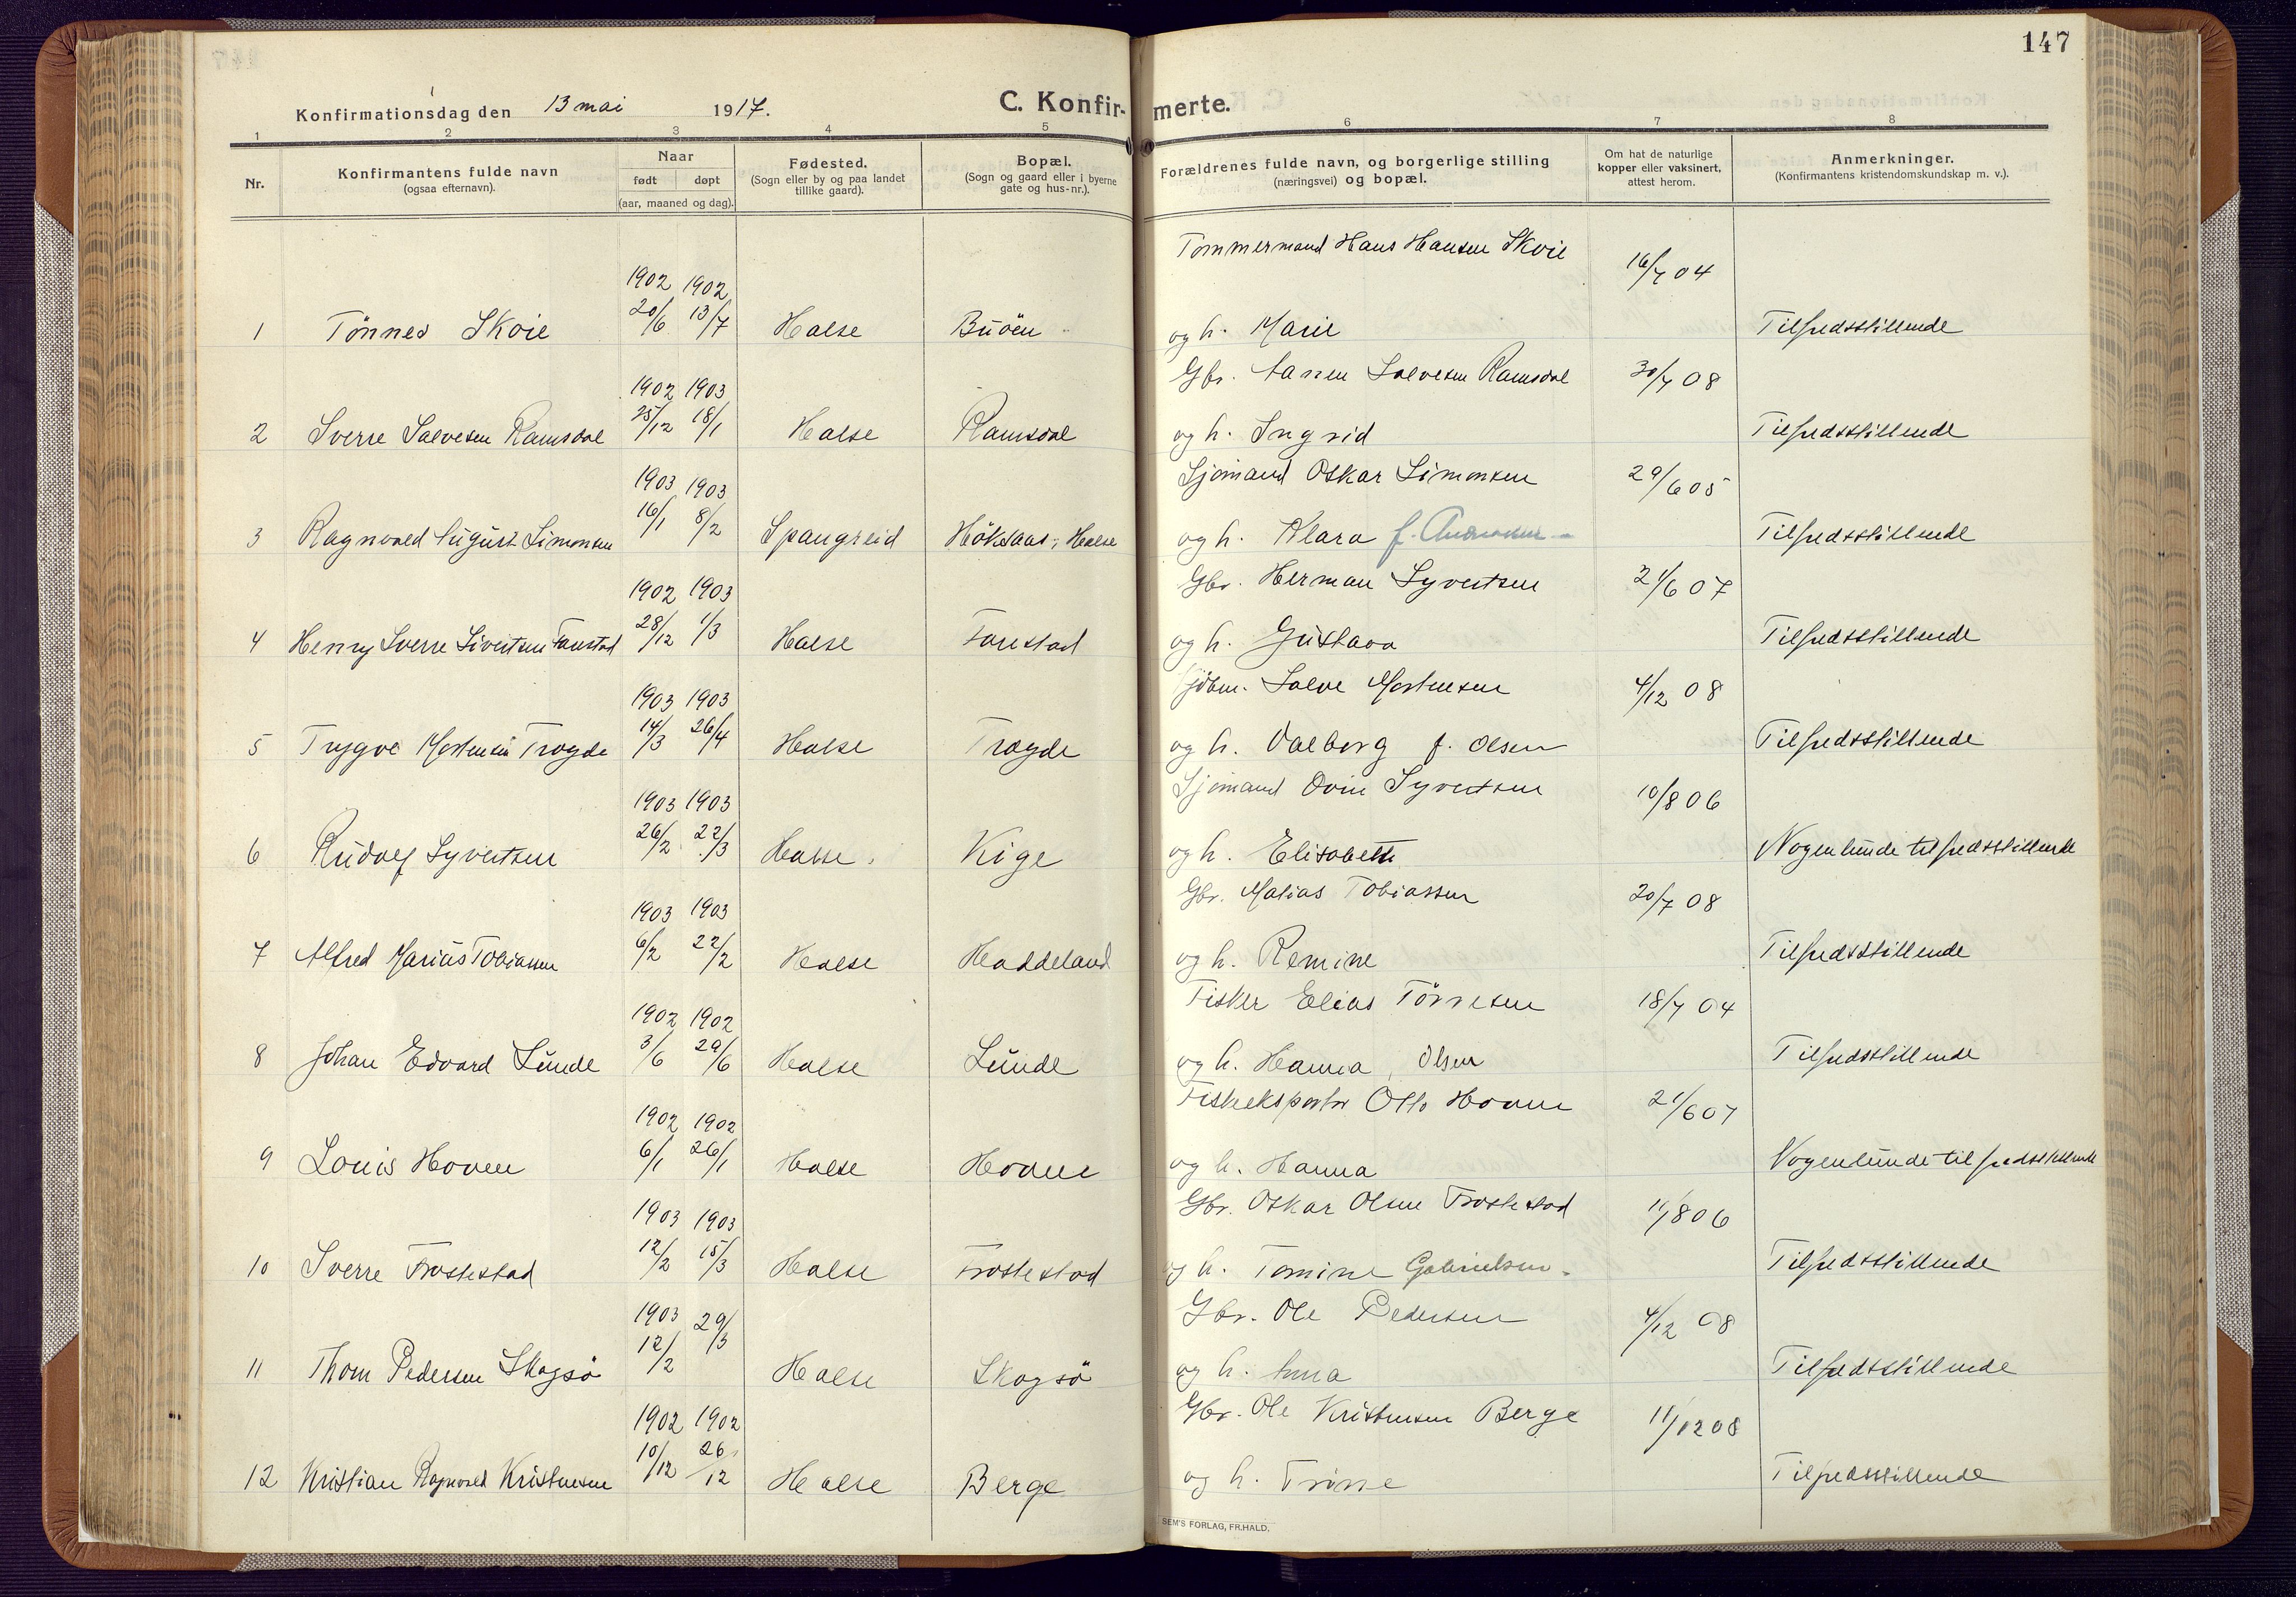 147
Konfirmationsdag den 13 mai 1917.
C. Konfir-merte.
1 2 3 4 5 6 7 8
Nr.
Konfirmantens fulde navn
(ogsaa efternavn).
Naar
født døpt
(aar, maaned og dag).
Fødested.
(Sogn eller by og paa landet
tillike gaard).
Bopæl.
(Sogn og gaard eller i byerne
gate og hus-nr.).
Forældrenes fulde navn, og borgerlige stilling
(næringsvei) og bopæl.
Om hat de naturlige
kopper eller vaksinert,
attest herom.
Anmerkninger.
(Konfirmantens kristendomskundskap m. v.).
Tømmermand Hans Hansen Skoie 16/7 04
1902 1902
1 Tønnes Skoie 20/6 13/7 Halse Buöen og h. Marie Tilfredsstillende
1902 1903 Gbr. Aanen Salvesen Ramsdal 30/7 08
2 Sverre Salvesen Ramsdal 25/12 18/1 Halse Ramsdal og h. Ingrid Tilfredsstillende
1903 1903 Sjømand Oskar Simonsen 29/6 05
3 Ragnvald August Simonsen 16/1 8/2 Spangreid Höksaas, Halse og h. Klara f. Tilfredsstillende
1902 1903 Gbr. Herman Syvertsen 21/6 07
4 Henry Sverre Sivertsen Tanestad 28/12 1/3 Halse Tanestad og h. Gustava Tilfredsstillende
1903 1903 Salve Mortensen 4/12 08
5 Trygve Mortensen Trogde 14/3 26/4 Halse Trogde og h. Valborg f. Olsen Tilfredsstillende
1903 1903 Sjømand Ovin Syvertsen 10/8 06
6 Rudolf Syvertsen 26/2 22/3 Halse Kige og h. Elisabeth Nogenlunde tilfredsstillende
1903 1903 Gbr. Matias Tobiassen 20/7 08
7 Alfred Marius Tobiassen 6/2 22/2 Halse Haddeland og h. Remine Tilfredsstillende
1902 1902 Fisker Elias Törresen 18/7 04
8 Johan Edvard Lunde 3/6 29/6 Halse Lunde og h. Hanna, Olsen Tilfredsstillende
1902 1902 Fiskeksportør Otto Hoven 21/6 07
9 Louis Hoven 6/1 26/1 Halse og h. Hanna Nogenlunde tilfredsstillende
1903 1903 Gbr. Oskar Olsen Frostestad 11/8 06
10 Sverre Frostestad 12/2 15/3 Halse Frostestad og h. Tomine Gabrielsen. Tilfredsstillende
1903 29/3 Gbr. Ole Pedersen 4/12 08
11 Thom Pedersen Skogsö 12/2 Halse Skogsö og h. Anna Tilfredsstillende
1902 1902 Gbr. Ole Kristensen Berge 11/12 08
12 Kristian Ragnvald Kristensen 10/12 26/12 Halse Berge og h. Trine Tilfredsstillende
SEM'S FORLAG, FR.HALD.